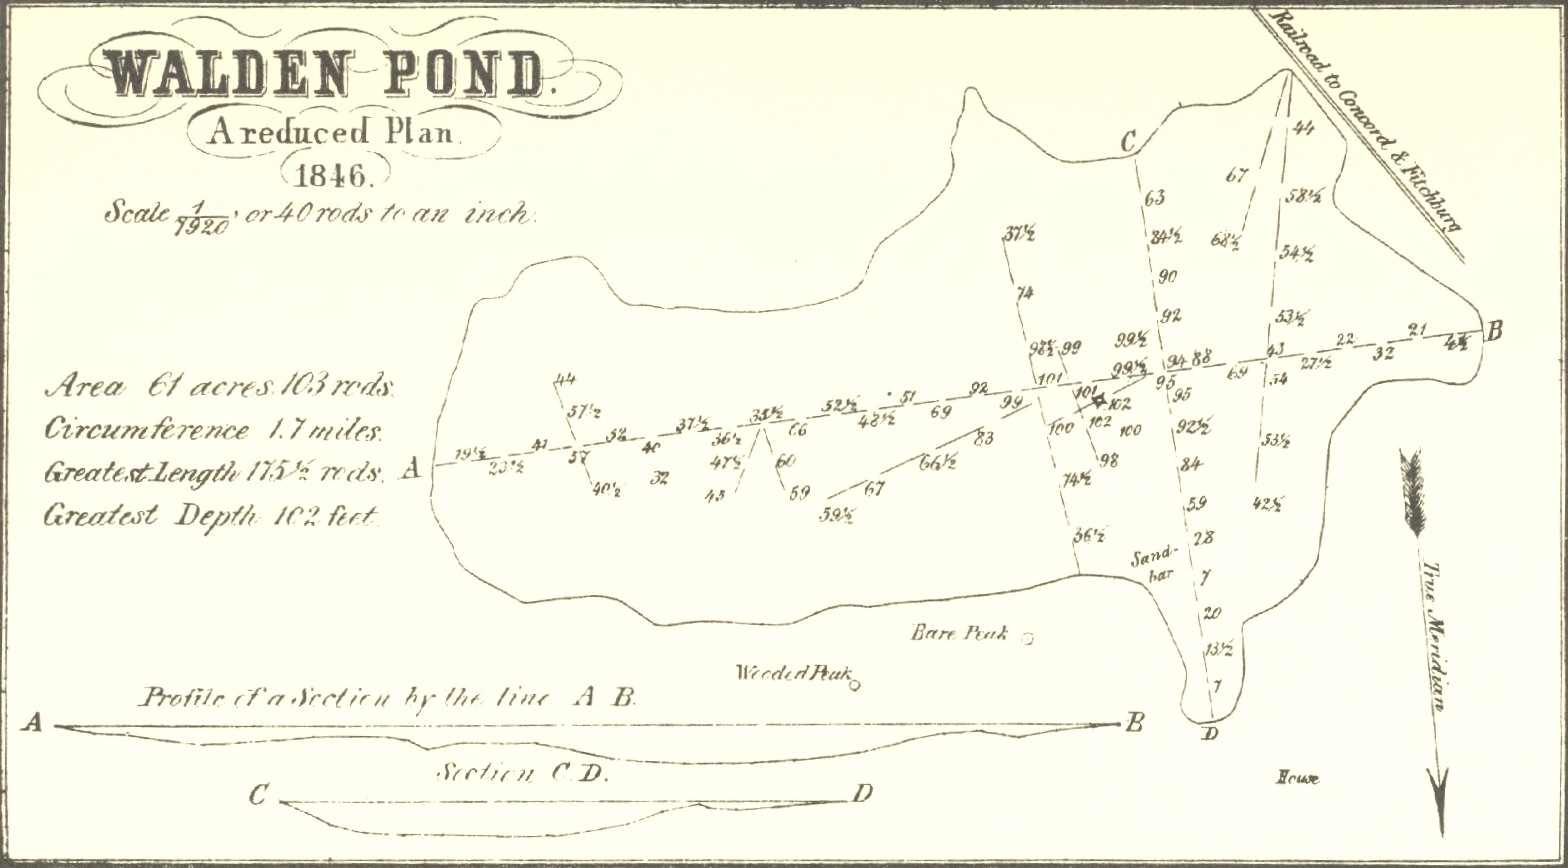 WALDEN POND.
A reduced Plan.
1846.
Scale 1/7920, or 40 rods to an inch.
Area 61 acres 103 rods.
Circumference 1.7 miles.
Greatest Length 175½ rods.
Greatest Depth 102 feet.
Railroad to Concord & Fitchburg
C
63
84½
90
92
99½
99½
94 88
95
95
92½
84
59
28
7
20
13½
7
D
44
67
58½
68½
54½
53½
43
54
53½
42½
37½
74
99
101
101
102
102
100
100
98
74½
36½
A
19½
41
57
40
32
37½
36½
66
52½
48½
51
69
92
99
83
66½
67
59½
44
57½
40½
47½
60
59
69
27½
22
32
21
B
Sand-
bar
Bare Peak
Wooded Peak
House
True Meridian
Profile of a Section by the line A B.
A B
Section C. D.
C D